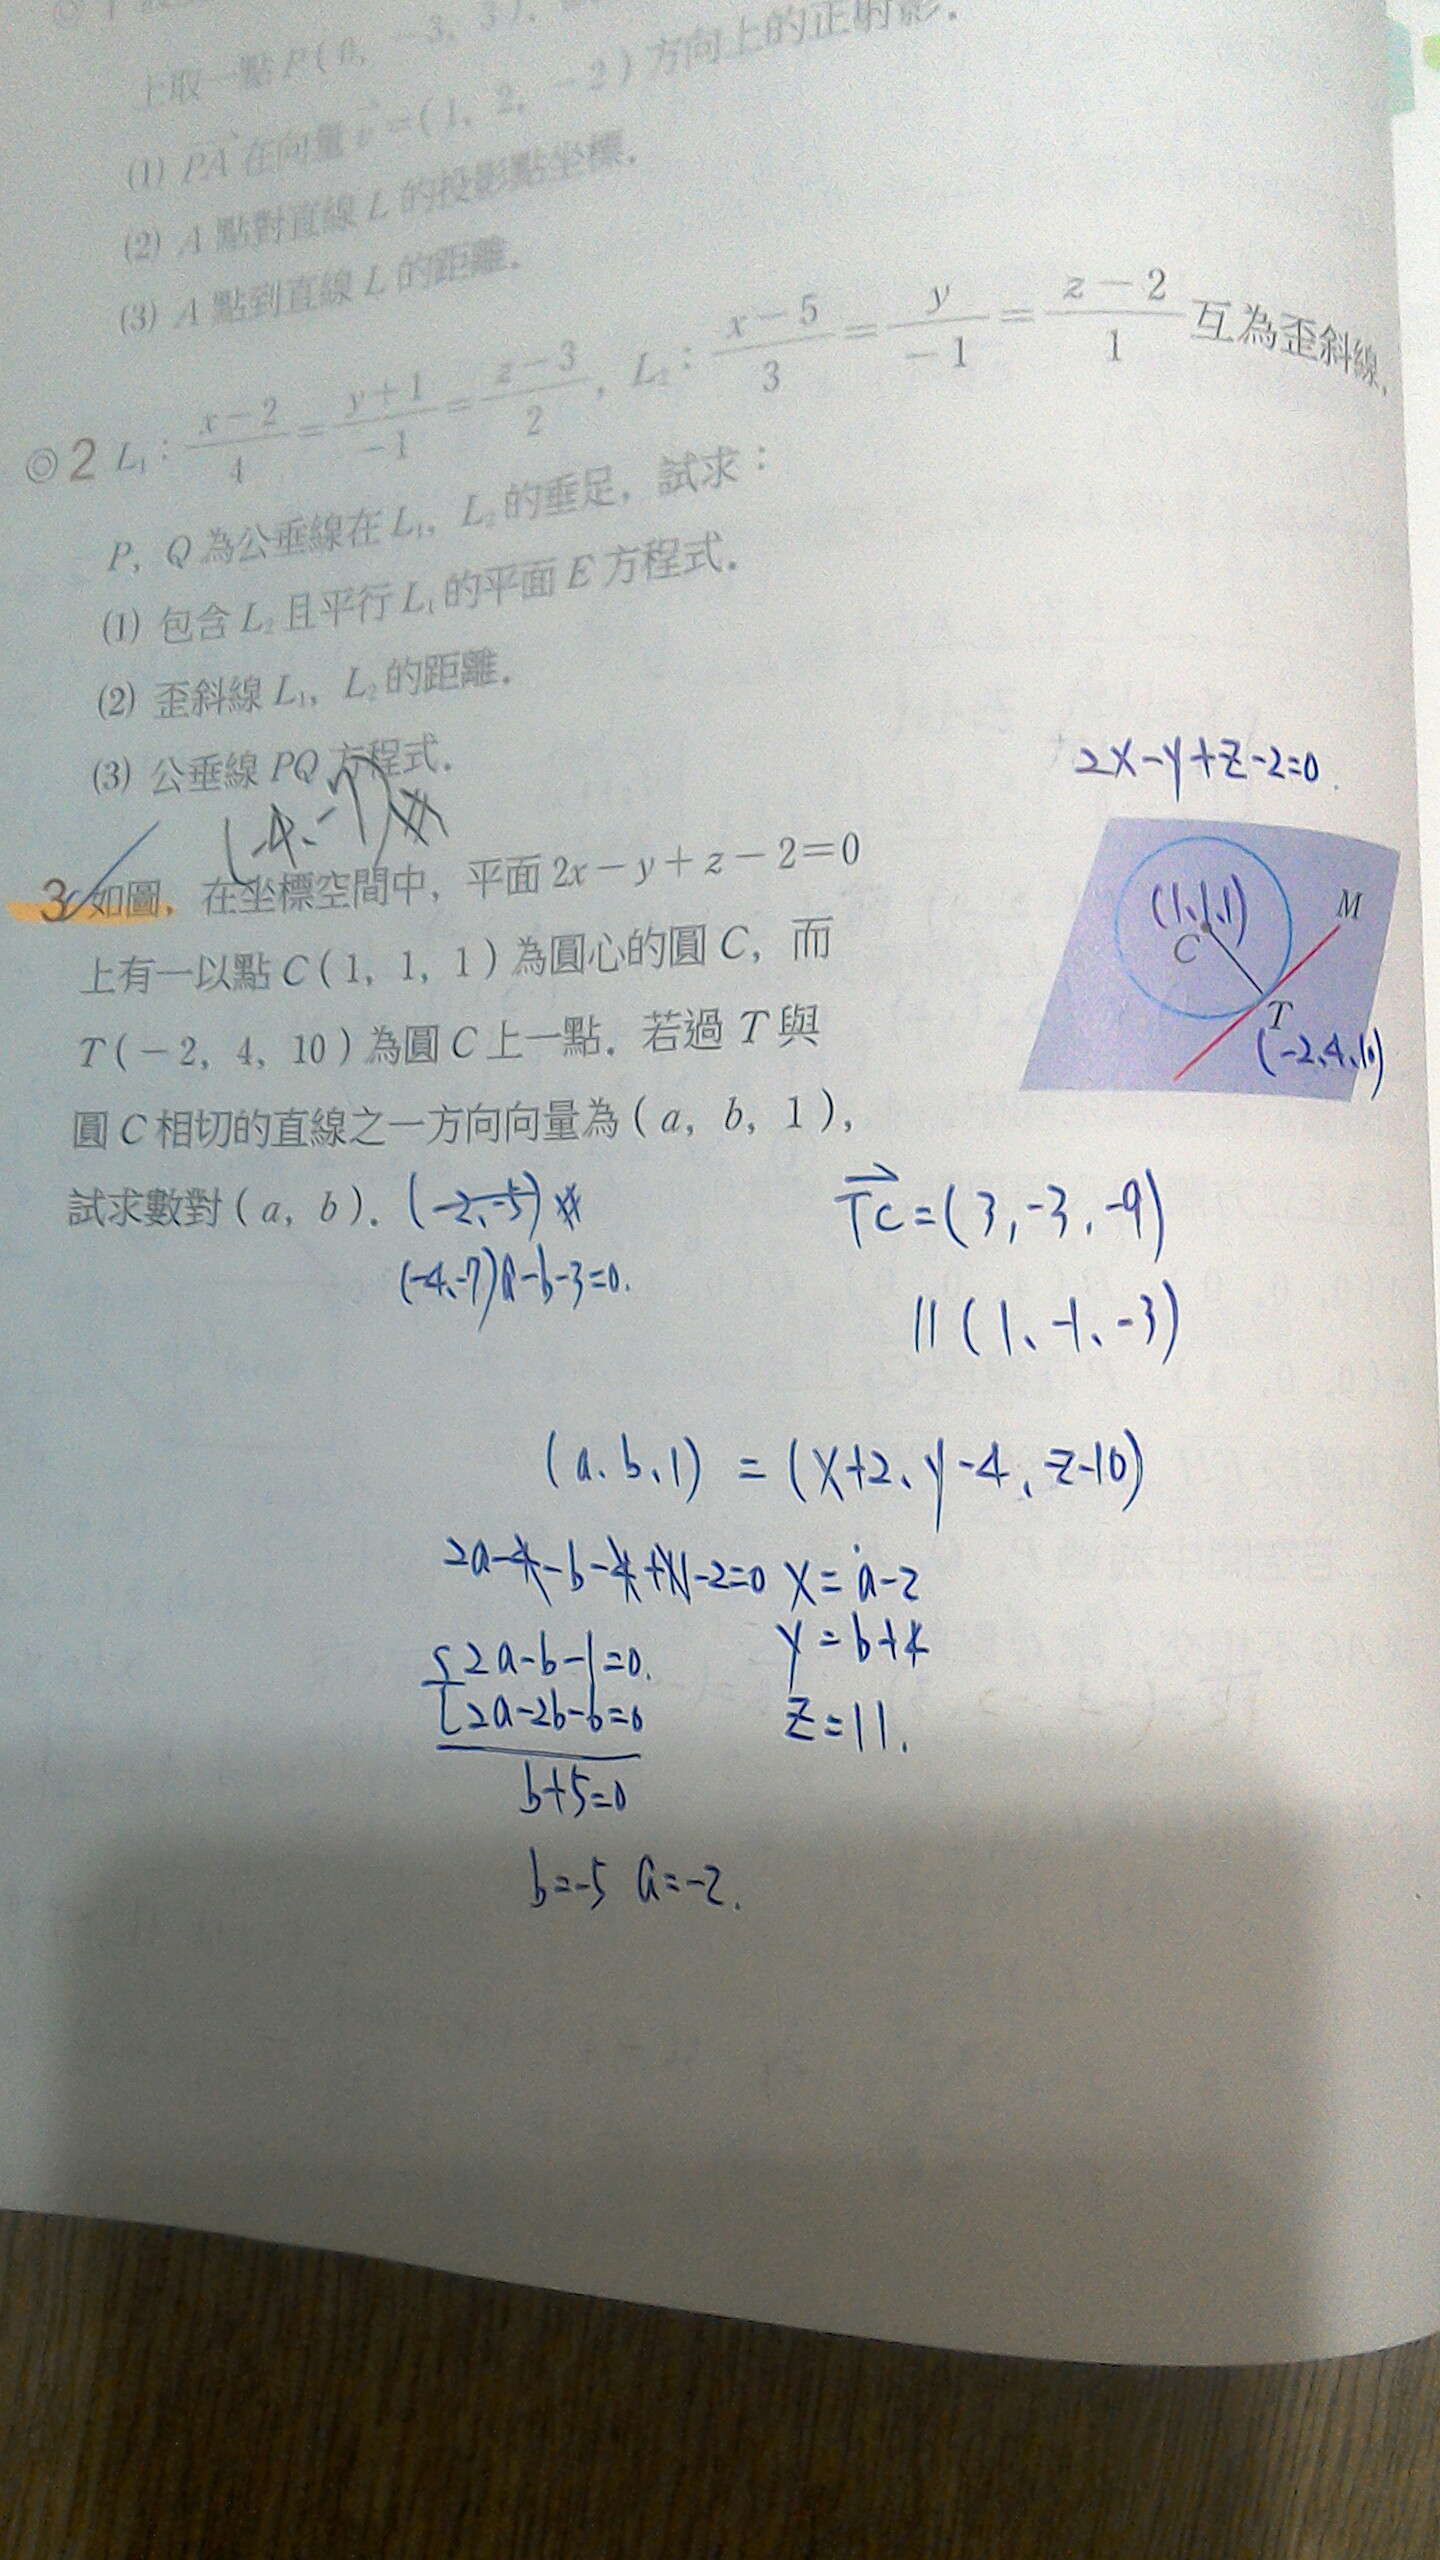 上取一點P(0, −3, 3).
(1) PA 在向量 v =(1, 2, −2) 方向上的正射影.
(2) A 點對直線 L 的投影點坐標.
(3) A 點到直線 L 的距離.
◎2 L₁: (x−2)/4 = (y+1)/−1 = (z−3)/2, L₂: (x−5)/3 = y/−1 = (z−2)/1 互為歪斜線,
P, Q 為公垂線在 L₁, L₂ 的垂足, 試求:
(1) 包含 L₂ 且平行 L₁ 的平面 E 方程式.
(2) 歪斜線 L₁, L₂ 的距離.
(3) 公垂線 PQ 方程式.
(-4、-7)
3 如圖, 在坐標空間中, 平面 2x−y+z−2=0
上有一以點 C(1, 1, 1)為圓心的圓 C, 而
T(−2, 4, 10)為圓 C 上一點. 若過 T 與
圓 C 相切的直線之一方向向量為(a, b, 1),
試求數對(a, b). (-2、-5)
(-4、-7) a-b-3=0.
2x-y+z-2=0.
(1、1、1)
C
M
T
(-2、4、10)
TC=(3,-3,-9)
//(1、-1、-3)
(a、b、1) = (x+2、y-4、z-10)
2a-4-b-4+11-2=0 x=a-2
y=b+4
2a-b-1=0.
z=11.
2a-2b-6=0
b+5=0
b=-5 a=-2.